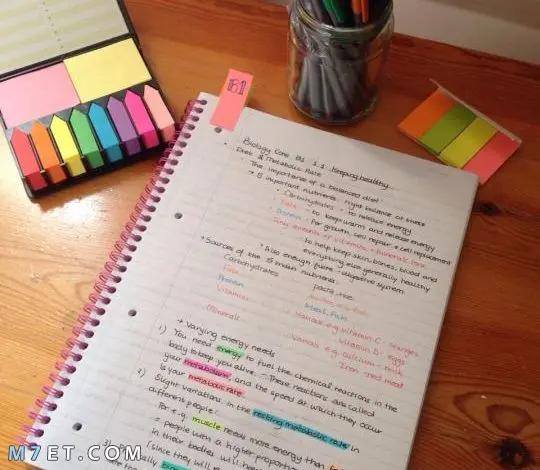 B1
Biology Core B1 1.1 Keeping healthy
Diet & Metabolic Rate
The importance of a balanced diet:
→ 5 important nutrients: right balance of these
Carbohydrates - to release energy
Fats - to keep warm and release energy
Protein - for growth, cell repair + cell replacement
Tiny amounts of vitamins + minerals ions
- to help keep skin, bones, blood and
everything else generally healthy
Also enough fibre - digestive system
→ Sources of the 5 main nutrients:
Carbohydrates pasta, rice
Fats
Protein Meat, fish
Vitamins Various e.g vitamin C - oranges
vitamin D - eggs
Minerals Various e.g. calcium - milk
Iron - red meat
→ Varying energy needs
1) You need energy to fuel the chemical reactions in the
body to keep you alive. These reactions are called
your metabolism, and the speed at which they occur
is your metabolic rate.
2) Slight variations in the resting metabolic rate in
different people:
For e.g. muscle needs more energy than
= people with a higher proportion
their bodies will
(since they will
3)
M7ET.COM